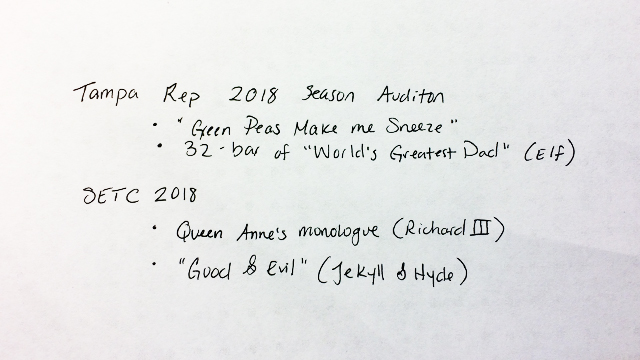 Tampa Rep 2018 Season Auditon
• "Green Peas Make me Sneeze"
• 32-bar of "World's Greatest Dad" (Elf)
SETC 2018
• Queen Anne's monologue (Richard III)
• "Good & Evil" (Jekyll & Hyde)